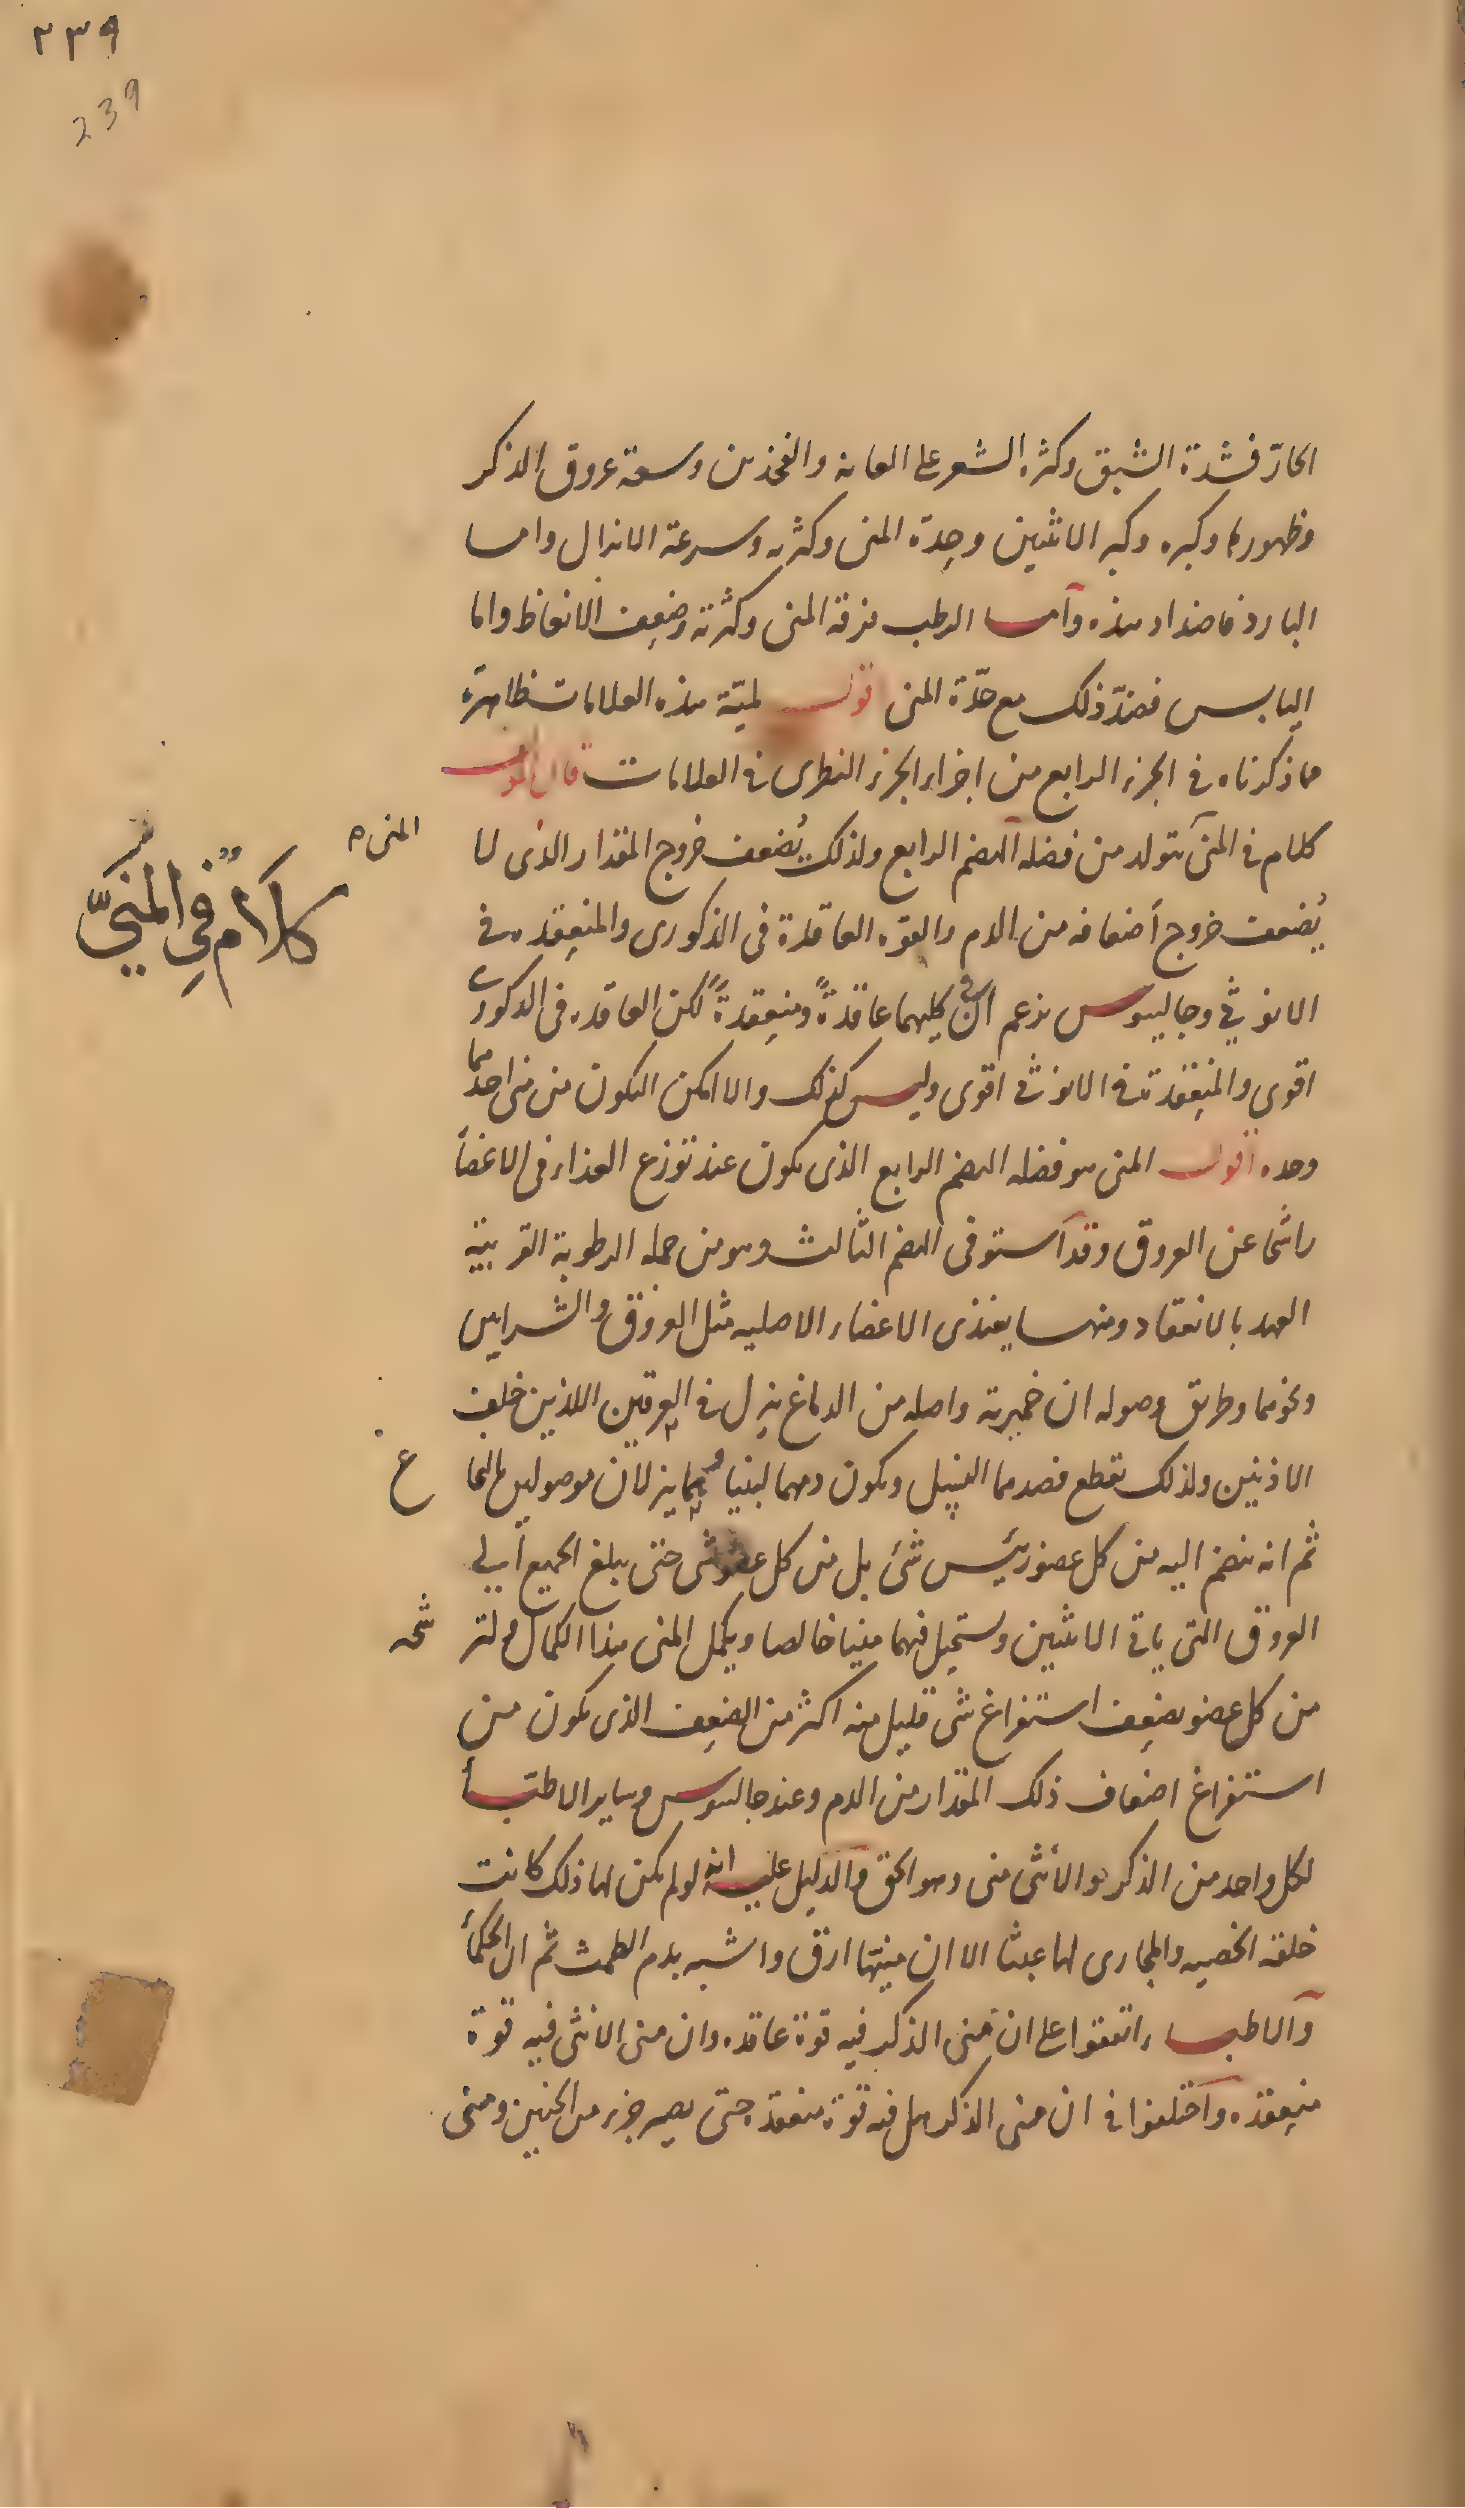 ٢٣٩
239
الحارّ فشدة الشبق وكثرة الشعر على العانة والفخذين وسعة عروق الذكر
وظهورها وكبره وكبر الانثيين وحِدة المنى وكثرته وسرعة الانزال واما
البارد فاضداد هذه وأما الرطب فرقة المنى وكثرته وضعِف الانعاظ واما
اليابس فضدّ ذلك مع حدّة المنى اقول لميّة هذه العلامات ظاهرة
مما ذكرناه فى الجزء الرابع من اجزاء الجزء النظرى فى العلامات قال المولف
كلام فى المنى يتولد من فضلة الهضم الرابع ولذلك يُضعف خروج المقدار الذى لا
المنى ه
كلَامٌ فِي المَنيِّ
يُضعف خروج أضعافه من الدم والقوة العاقدة فى الذكورى والمنعِقده فى
الانوثى وجالينوس يزعم ان فى كليهما عاقدةً ومنعِقدةً لكن العاقده فى الذكورى
اقوى والمنعِقدة فى الانوثى اقوى وليس كذلك والا امكن التكون من منى احدهما
وحده اقول المنى هو فضلة الهضم الرابع الذى يكون عند توزع الغذاء فى الاعضأ
راشحا عن العروق وقد استوفى الهضم الثالث وهو من جملة الرطوبة القريبة
العهد بالانعقاد ومنها يغتذى الاعضاء الاصليه مثل العروق والشرايين
ونحوهما وطريق وصوله ان خميرته واصله من الدماغ ينزل فى العرقين اللذين خلف
الاذنين ولذلك يقطع فصدهما النسل ويكون دمهما لبنيا وهما ينزلان موصولين بالنخا
ع
ثم انه ينضم اليه من كل عضو رئيس شئ بل من كل عضو شى حتى يبلغ الجميع الى
العروق التى ياتى الانثيين ويستحيل فيهما منيا خالصا ويكمل المنى هذا الكمال ولتر
شحه
من كل عضو يضعِف استفراغ شى قليل منه اكثر من الضعِف الذى يكون من
استفراغ اضعاف ذلك المقدار من الدم وعند جالينوس وساير الاطبأ
لكل واحد من الذكر والأنثى منى وهو الحق والدليل عليه انه لو لم يكن لها ذلك كانت
خلقة الخصيه والمجارى لها عبثا الا ان منيّها ارق واشبه بدم الطمث ثم ان الحكمأ
والاطباء اتفقوا على ان منى الذكر فيه قوة عاقده وان منى الانثى فيه قوة
منعِقده واختلفوا فى ان منى الذكر هل فيه قوة منعقدة حتى يصير جزء من الجنين ومنى